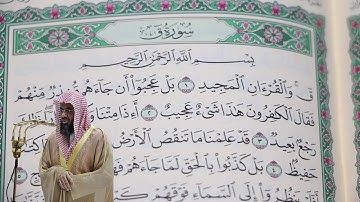 سُورَةُ ق
بِسْمِ اللَّهِ الرَّحْمَٰنِ الرَّحِيمِ
قٓ ۚ وَالْقُرْءَانِ الْمَجِيدِ ١ بَلْ عَجِبُوا أَن جَاءَهُم مُّنذِرٌ مِّنْهُمْ
فَقَالَ الْكَٰفِرُونَ هَٰذَا شَيْءٌ عَجِيبٌ ٢ أَءِذَا مِتْنَا
رَجْعٌ بَعِيدٌ ٣ قَدْ عَلِمْنَا مَا تَنقُصُ الْأَرْضُ
حَفِيظٌ ٤ بَلْ كَذَّبُوا بِالْحَقِّ لَمَّا جَاءَهُمْ فَهُمْ
يَنظُرُوا إِلَى السَّمَاءِ فَوْقَهُمْ